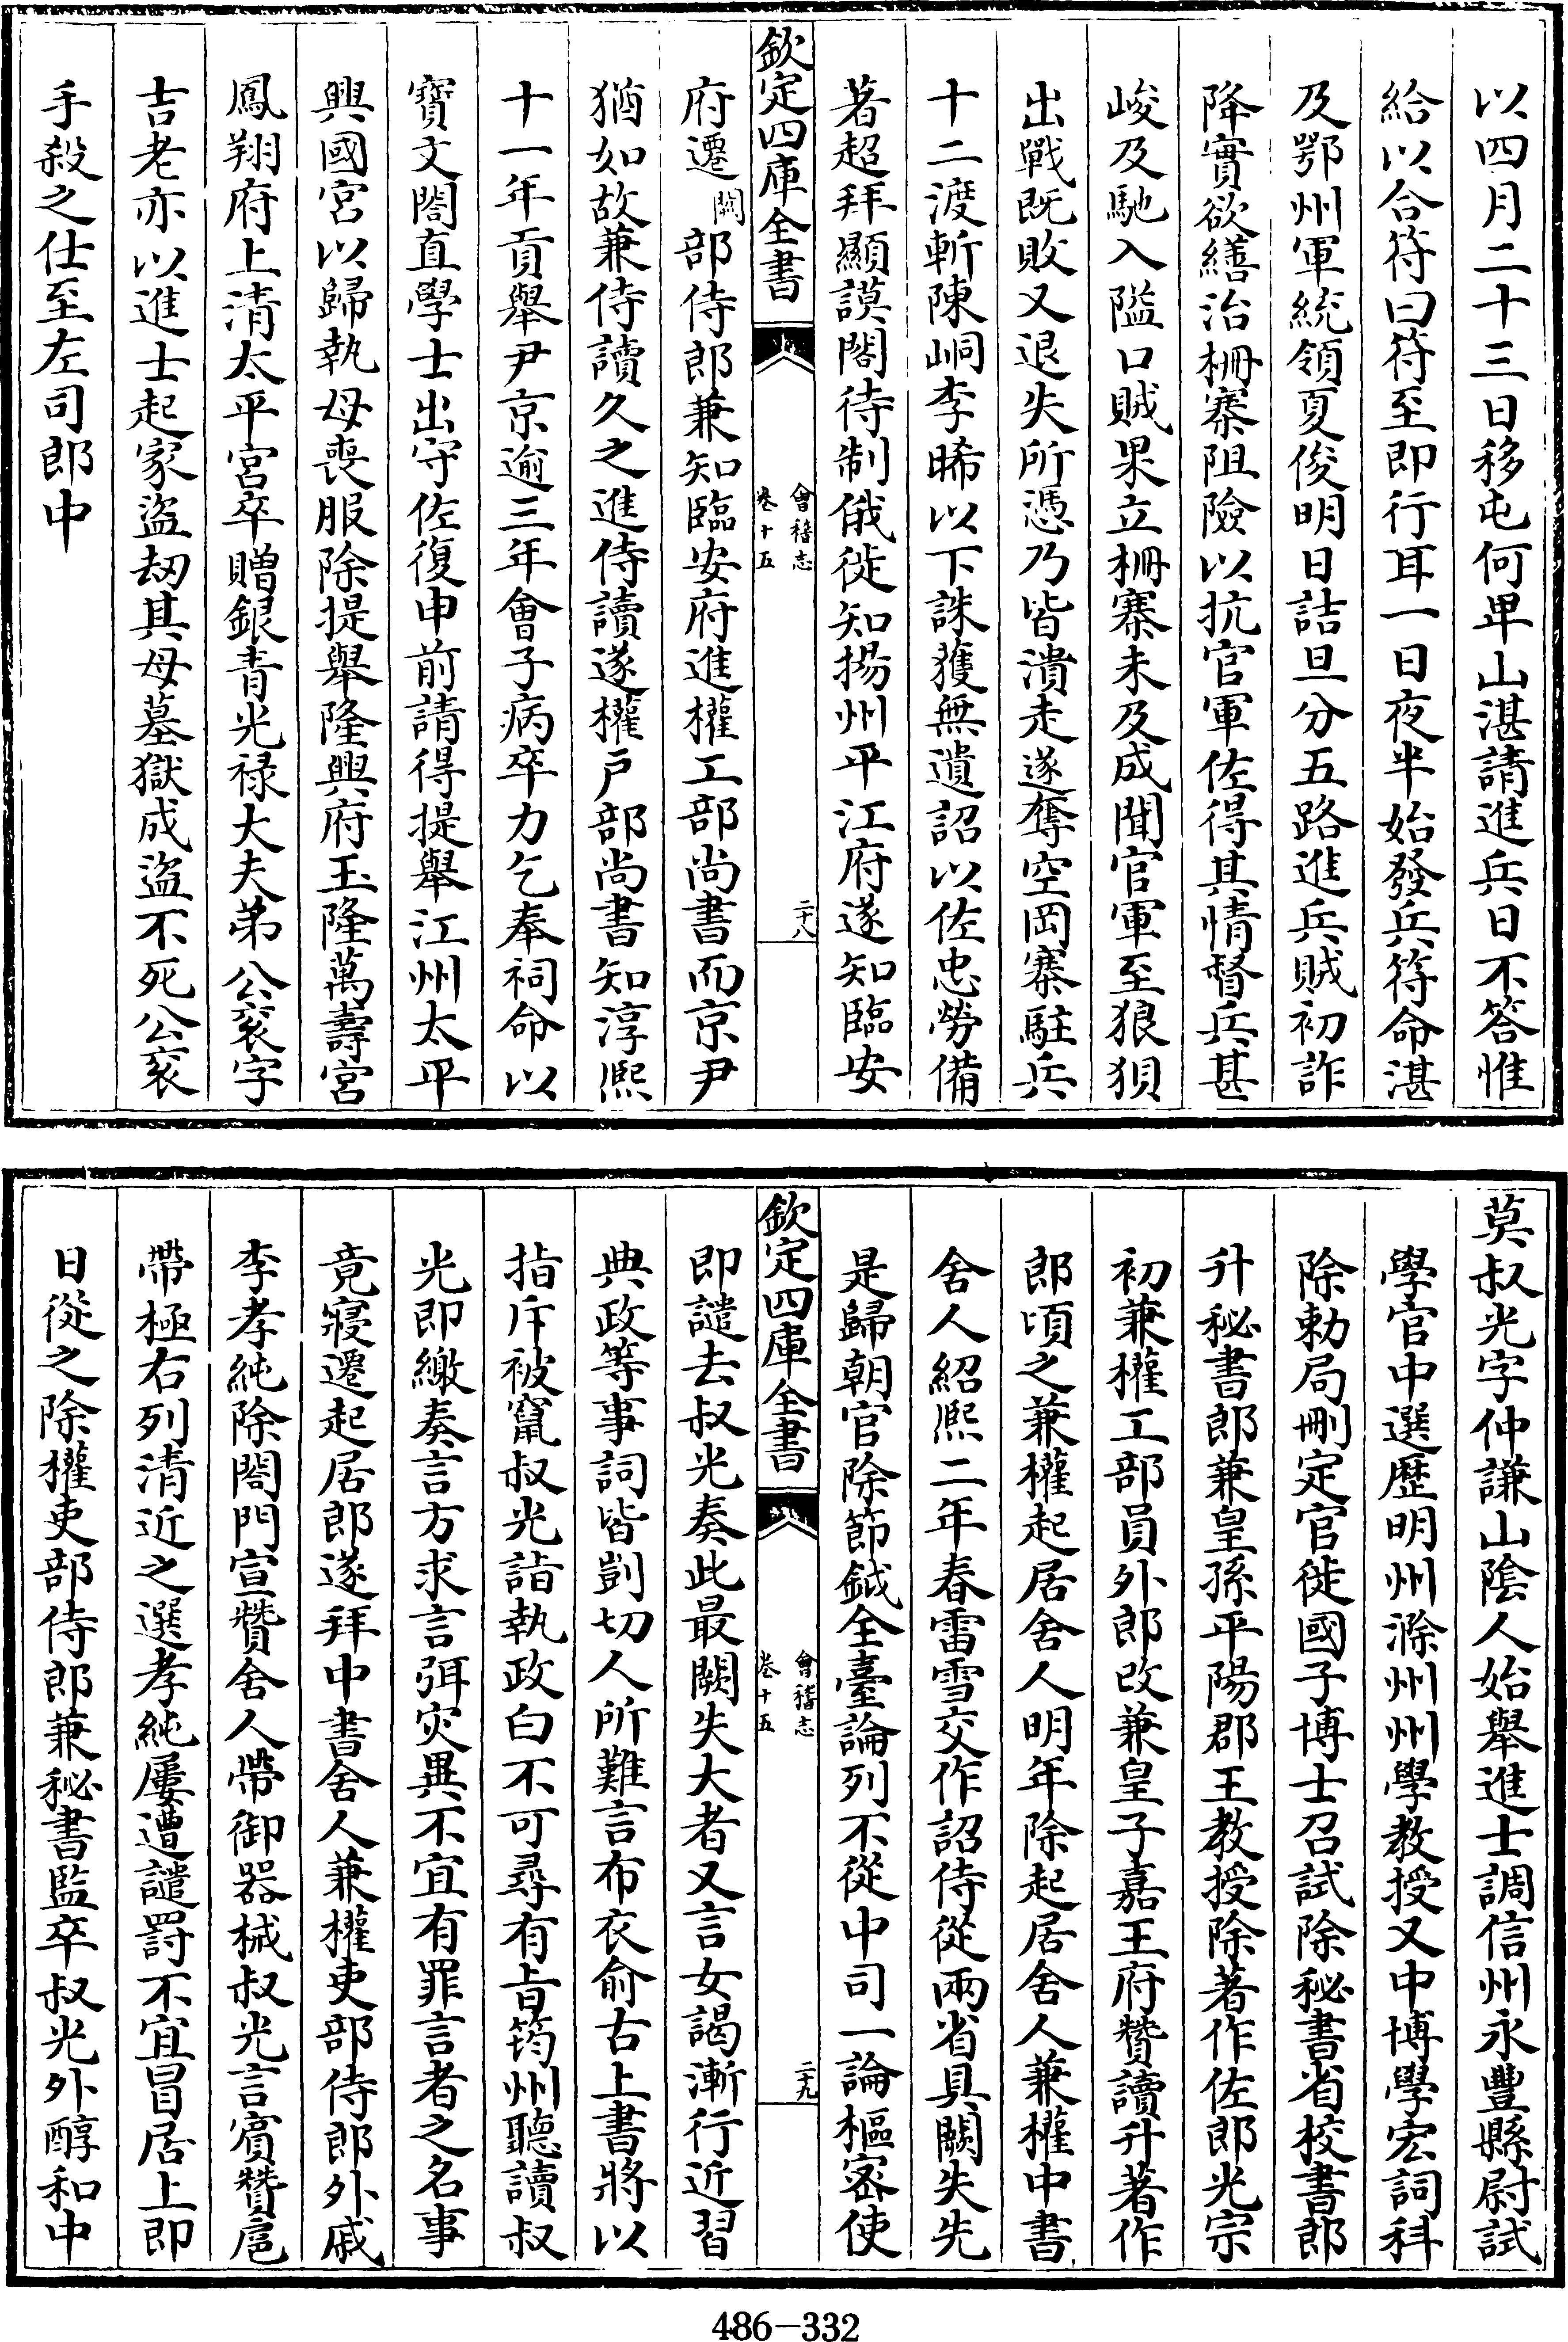 以四月二十三日移屯何卑山湛請進兵日不答惟
給以合符曰符至即行耳一日夜半始發兵符命湛
及鄂州軍統領夏俊明日詰旦分五路進兵賊初詐
降實欲繕治柵寨阻險以抗官軍佐得其情督兵甚
峻及馳入隘口賊果立柵寨未及成聞官軍至狼狽
出戰既敗又退失所憑乃皆潰走遂奪空岡寨駐兵
十二渡斬陳峒李晞以下誅獲無遺詔以佐忠勞備
著超拜顯謨閣待制俄徙知揚州平江府遂知臨安
欽定四庫全書
會稽志
卷十五
二十八
府遷闕部侍郎兼知臨安府進權工部尚書而京尹
猶如故兼侍讀久之進侍讀遂權戶部尚書知淳熙
十一年貢舉尹京逾三年會子病卒力乞奉祠命以
寶文閣直學士出守佐復申前請得提舉江州太平
興國宮以歸執母喪服除提舉隆興府玉隆萬壽宮
鳳翔府上清太平宮卒贈銀青光祿大夫弟公衮字
吉老亦以進士起家盜刼其母墓獄成盜不死公衮
手殺之仕至左司郎中
莫叔光字仲謙山陰人始舉進士調信州永豐縣尉試
學官中選歷明州滁州州學教授又中博學宏詞科
除勅局刪定官徙國子博士召試除秘書省校書郎
升秘書郎兼皇孫平陽郡王教授除著作佐郎光宗
初兼權工部員外郎改兼皇子嘉王府贊讀升著作
郎頃之兼權起居舍人明年除起居舍人兼權中書
舍人紹熙二年春雷雪交作詔侍從兩省具闕失先
是歸朝官除節鉞全臺論列不從中司一論樞密使
欽定四庫全書
會稽志
卷十五
二十九
即譴去叔光奏此最闕失大者又言女謁漸行近習
典政等事詞皆剴切人所難言布衣俞古上書將以
指斥被竄叔光詣執政白不可尋有旨筠州聽讀叔
光即繳奏言方求言弭災異不宜有罪言者之名事
竟寢遷起居郎遂拜中書舍人兼權吏部侍郎外戚
李孝純除閤門宣贊舍人帶御器械叔光言賓贊扈
帶極右列清近之選孝純屢遭譴罸不宜冒居上即
日從之除權吏部侍郎兼秘書監卒叔光外醇和中
486-332